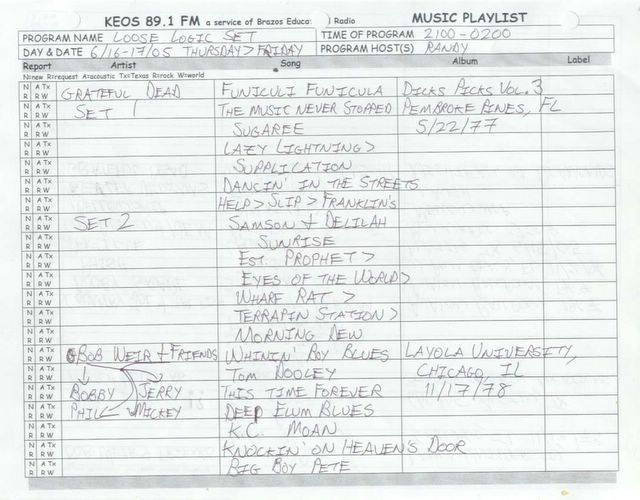 KEOS 89.1 FM a service of Brazos Educa Radio MUSIC PLAYLIST
PROGRAM NAME LOOSE LOGIC SET TIME OF PROGRAM 2100-0200
DAY & DATE 6/16-17/05 THURSDAY > FRIDAY PROGRAM HOST(S) RANDY
Report Artist Song Album Label
N=new R=request A=acoustic Tx=Texas R=rock W=world
N A Tx R R W GRATEFUL DEAD FUNICULI FUNICULA DICKS PICKS VOL. 3
N A Tx R R W SET 1 THE MUSIC NEVER STOPPED PEMBROKE PINES, FL
N A Tx R R W SUGAREE 5/22/77
N A Tx R R W LAZY LIGHTNING >
N A Tx R R W SUPPLICATION
N A Tx R R W DANCIN' IN THE STREETS
N A Tx R R W HELP > SLIP > FRANKLIN'S
N A Tx R R W SET 2 SAMSON + DELILAH
N A Tx R R W SUNRISE
N A Tx R R W EST. PROPHET >
N A Tx R R W EYES OF THE WORLD >
N A Tx R R W WHARF RAT >
N A Tx R R W TERRAPIN STATION >
N A Tx R R W MORNING DEW
N A Tx R R W BOB WEIR + FRIENDS WHININ' BOY BLUES LAYOLA UNIVERSITY,
N A Tx R R W TOM DOOLEY CHICAGO, IL
N A Tx R R W BOBBY JERRY THIS TIME FOREVER 11/17/78
N A Tx R R W PHIL MICKEY DEEP ELUM BLUES
N A Tx R R W K.C. MOAN
N A Tx R R W KNOCKIN' ON HEAVEN'S DOOR
N A Tx R R W BIG BOY PETE